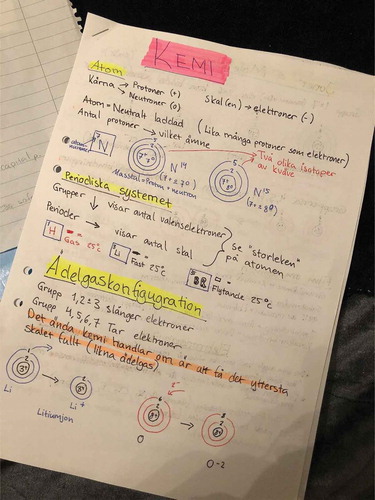 KEMI
Atom
Kärna → Protoner (+)
→ Neutroner (0)
Skal(en) → elektroner (-)
Atom = Neutralt laddad (Lika många protoner som elektroner)
Antal protoner → vilket ämne
7
N
5
2
N¹⁴
Masstal = Proton + neutron
5
2
N¹⁵
Två olika isotoper
av kväve
Periodiska systemet
Grupper ↓ visar antal valenselektroner
Perioder → visar antal skal
Se "storleken"
på atomen
H = Gas 25°C
Li = Fast 25°C
Br = Flytande 25°C
Ädelgaskonfigugration
Grupp 1, 2 = 3 slänger elektroner
Grupp 4, 5, 6, 7 Tar elektroner
Det ända kemi handlar om är att få det yttersta
skalet fullt (likna ädelgas)
1
2
3+
Li
→
2
3+
Li+
Litiumjon
6
2
8+
O
→
8
2
8+
O-2